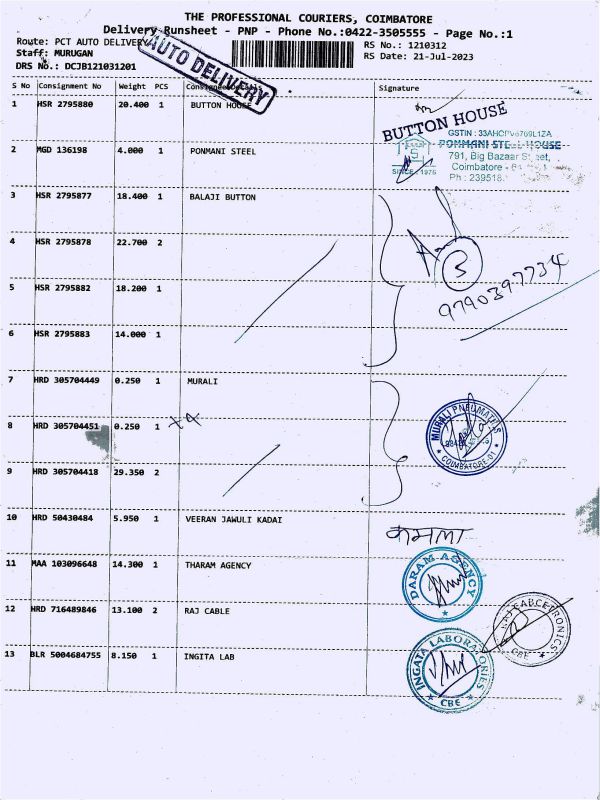 THE PROFESSIONAL COURIERS, COIMBATORE
Delivery Runsheet - PNP - Phone No.:0422-3505555 - Page No.:1
Route: PCT AUTO DELIVERY
RS No.: 1210312
Staff: MURUGAN
RS Date: 21-Jul-2023
DRS No.: DCJB121031201
AUTO DELIVERY
S No Consignment No Weight PCS Consignee Details Signature
1 HSR 2795880 20.400 1 BUTTON HOUSE
BUTTON HOUSE
GSTIN : 
PONMANI STEEL HOUSE
2 MGD 136198 4.000 1 PONMANI STEEL
791, Big Bazaar Street,
Coimbatore -
SINCE : 1976
Ph : 239518
3 HSR 2795877 18.400 1 BALAJI BUTTON
4 HSR 2795878 22.700 2
3
9790397734
5 HSR 2795882 18.200 1
6 HSR 2795883 14.000 1
7 HRD 305704449 0.250 1 MURALI
8 HRD 305704451 0.250 1
MURALI PNEUMATICS
COIMBATORE-01
9 HRD 305704418 29.350 2
10 HRD 50430484 5.950 1 VEERAN JAWULI KADAI
कमला
11 MAA 103096648 14.300 1 THARAM AGENCY
DARAM AGENCY
12 HRD 716489846 13.100 2 RAJ CABLE
RAJ CABCETRONICS
CBE
13 BLR 5004684755 8.150 1 INGITA LAB
INGATA LABORATORIES
CBE